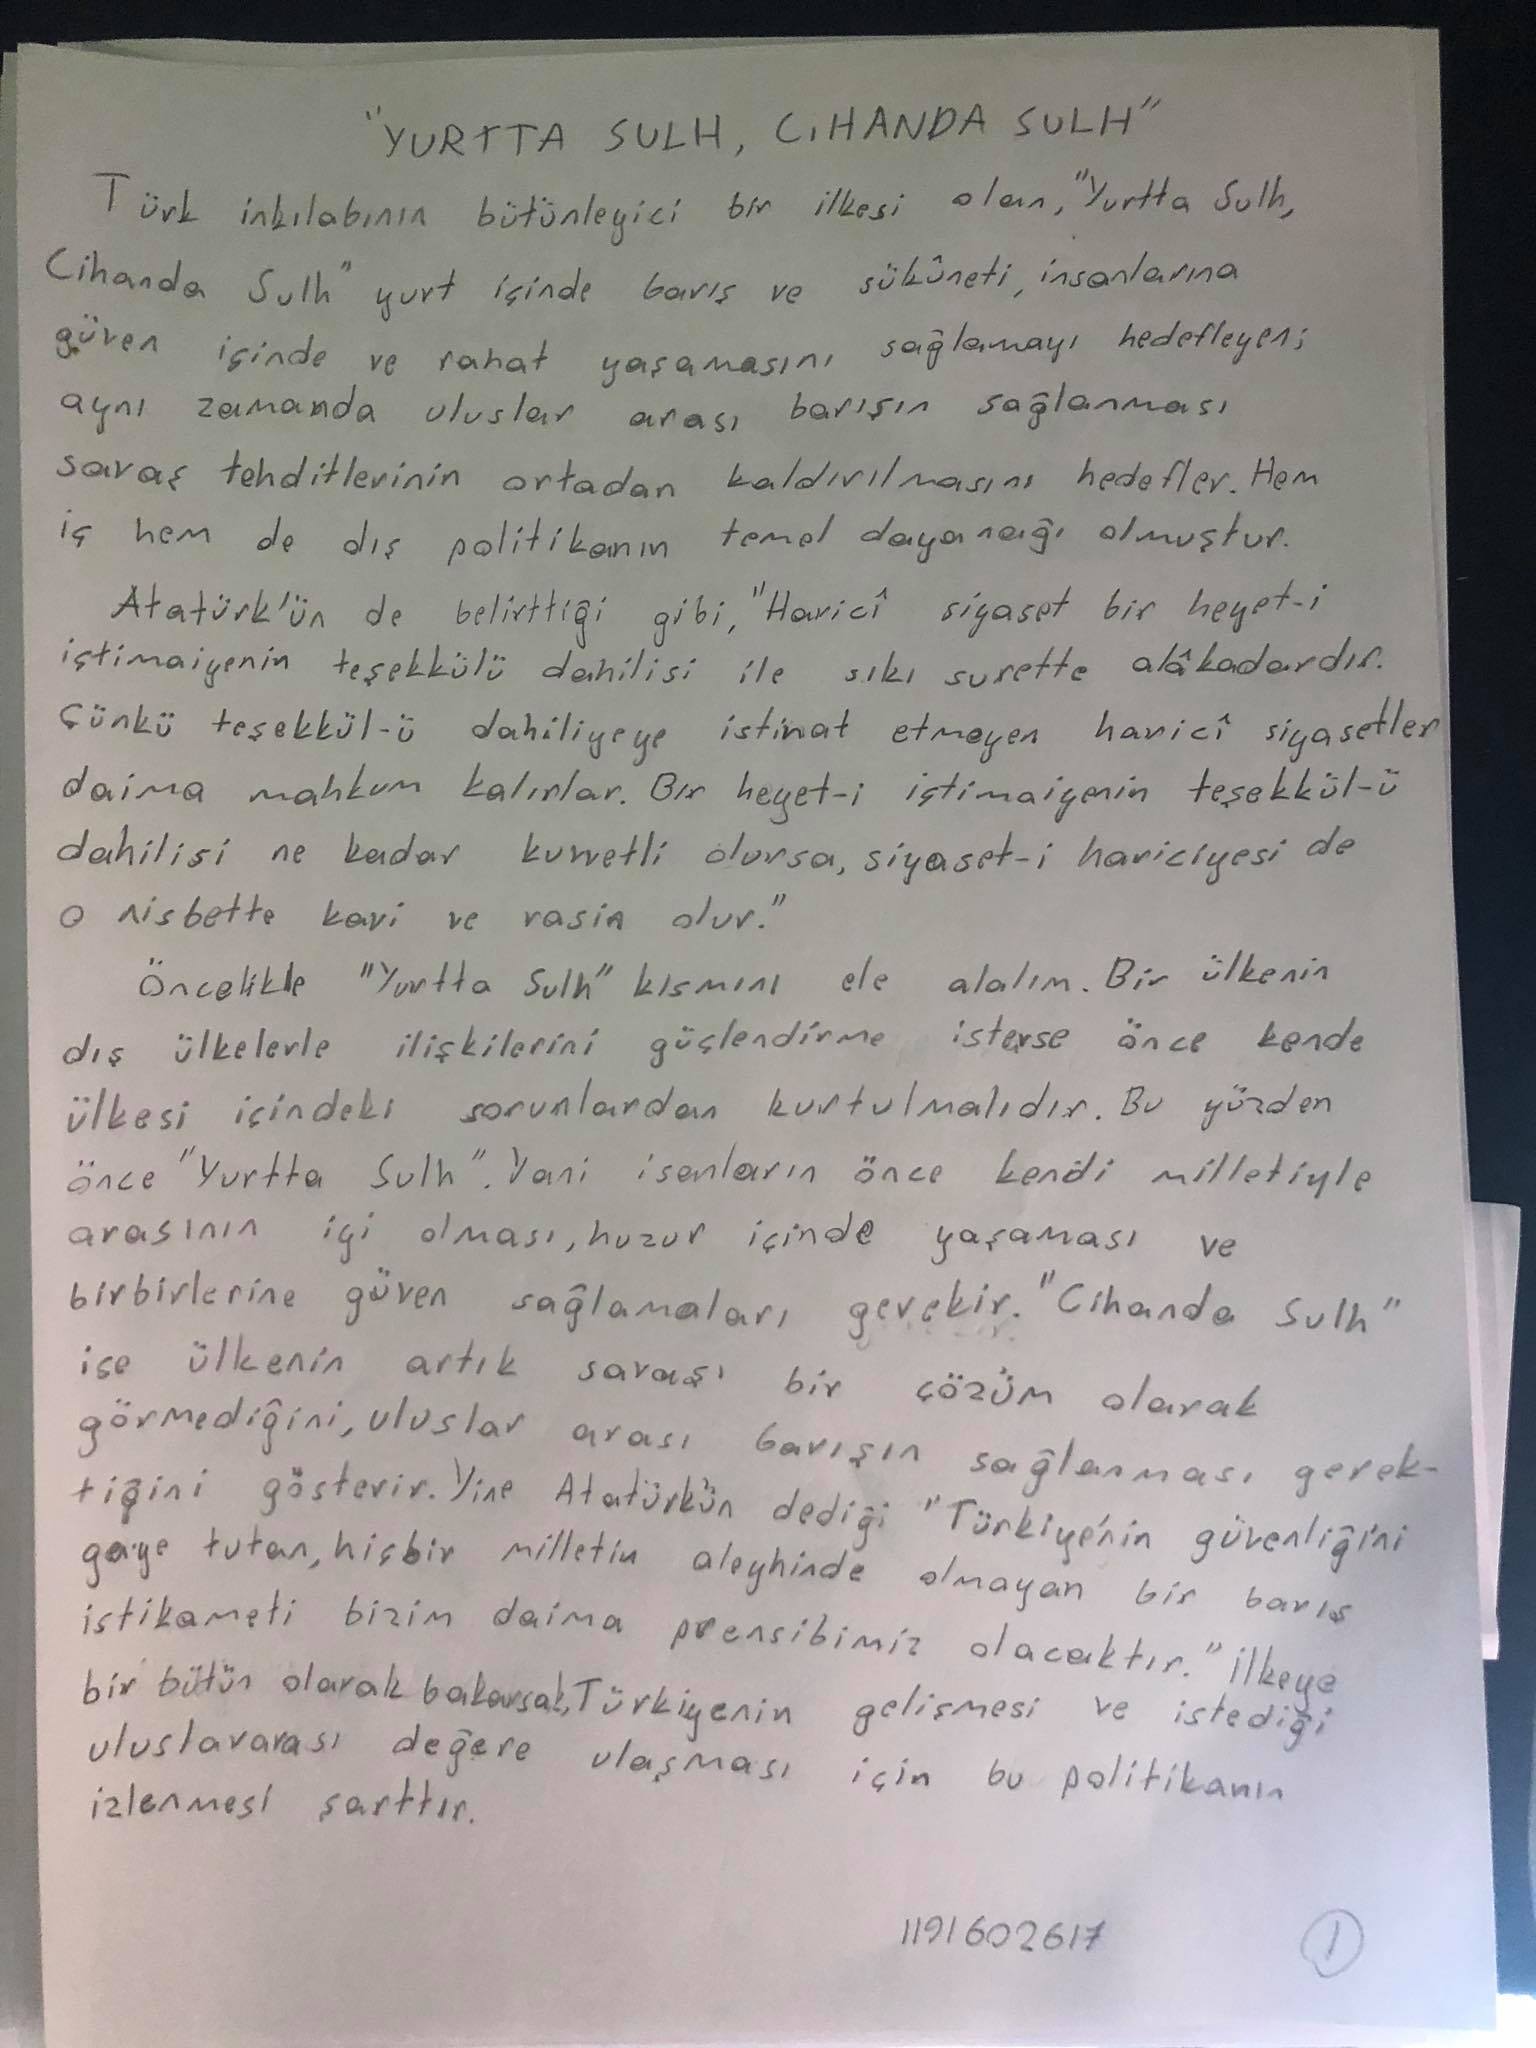 "YURTTA SULH, CiHANDA SULH"
Türk inkılabının bütünleyici bir ilkesi olan, "Yurtta Sulh,
Cihanda Sulh" yurt içinde barış ve sükûneti, insanlarına
güven içinde ve rahat yaşamasını sağlamayı hedefleyen;
aynı zamanda uluslar arası barışın sağlanması
savaş tehditlerinin ortadan kaldırılmasını hedefler. Hem
iç hem de dış politikanın temel dayanağı olmuştur.
Atatürk'ün de belirttiği gibi, "Haricî siyaset bir heyet-i
içtimaiyenin teşekkülü dahilisi ile sıkı surette alâkadardır.
Çünkü teşekkül-ü dahiliyeye istinat etmeyen haricî siyasetler
daima mahkum kalırlar. Bir heyet-i içtimaiyenin teşekkül-ü
dahilisi ne kadar kuvvetli olursa, siyaset-i hariciyesi de
o nisbette kavi ve rasin olur."
Öncelikle "Yurtta Sulh" kısmını ele alalım. Bir ülkenin
dış ülkelerle ilişkilerini güçlendirme isterse önce kende
ülkesi içindeki sorunlardan kurtulmalıdır. Bu yüzden
önce "Yurtta Sulh". Yani isanların önce kendi milletiyle
arasının iyi olması, huzur içinde yaşaması ve
birbirlerine güven sağlamaları gerekir. "Cihanda Sulh"
ise ülkenin artık savaşı bir çözüm olarak
görmediğini, uluslar arası barışın sağlanması gerek-
tiğini gösterir. Yine Atatürk'ün dediği "Türkiye'nin güvenliğini
gaye tutan, hiçbir milletin aleyhinde olmayan bir barış
istikameti bizim daima prensibimiz olacaktır." İlkeye
bir bütün olarak bakarsak, Türkiyenin gelişmesi ve istediği
uluslararası değere ulaşması için bu politikanın
izlenmesi şarttır.
1191602617
1